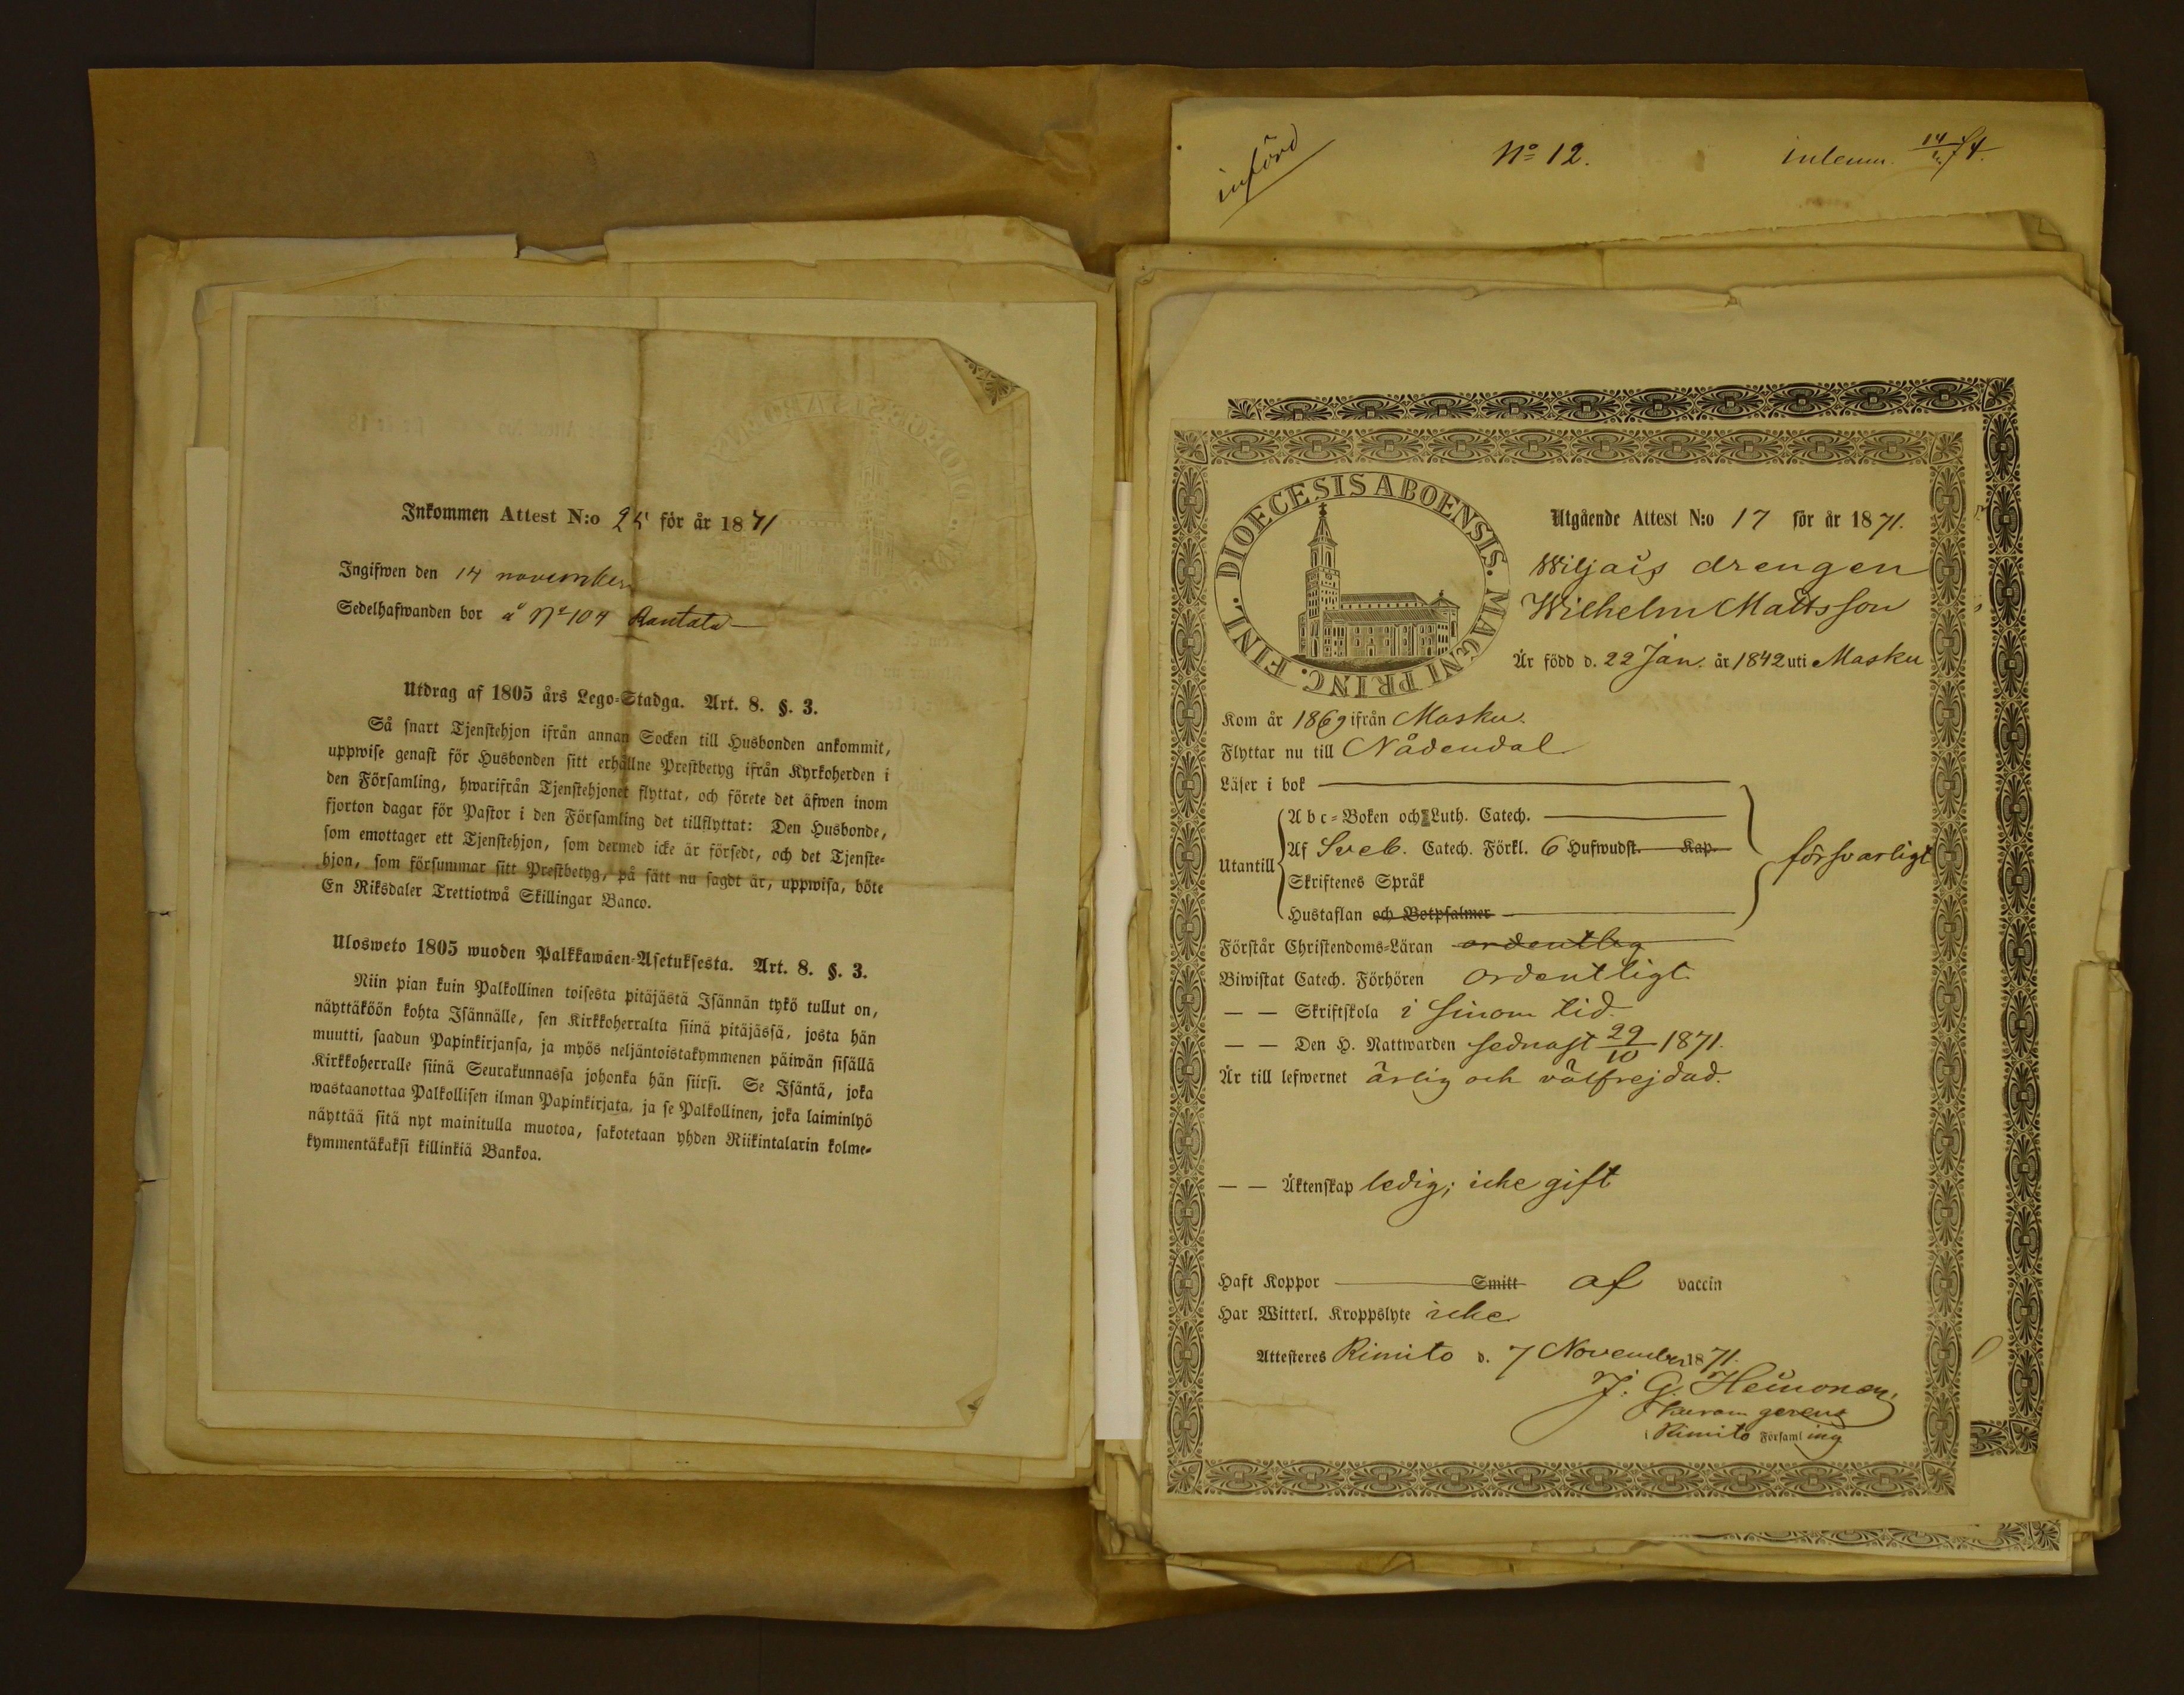 Inkommen Attest N:o 25 för år 1871
Ingifwen den 14 november
Sedelhafwanden bor å No 104 Rantala
Utdrag af 1805 års Lego-Stadga. Art. 8. §. 3.
Så snart Tjenstehjon ifrån annan Socken till Husbonden ankommit,
uppwise genast för Husbonden sitt erhållne Prestbetyg ifrån Kyrkoherden i
den Församling, hwarifrån Tjenstehjonet flyttat, och förete det äfwen inom
fjorton dagar för Pastor i den Församling det tillflyttat: Den Husbonde,
som emottager ett Tjenstehjon, som dermed icke är försedt, och det Tjenste-
hjon, som försummar sitt Prestbetyg, på sätt nu sagdt är, uppwisa, böte
En Riksdaler Trettiotwå Skillingar Banco.
Ulosweto 1805 wuoden Palkkawäen-Asetuksesta. Art. 8. §. 3.
Niin pian kuin Palkollinen toisesta pitäjästä Isännän tykö tullut on,
näyttäköön kohta Isännälle, sen Kirkkoherralta siinä pitäjässä, josta hän
muutti, saadun Papinkirjansa, ja myös neljäntoistakymmenen päiwän sisällä
Kirkkoherralle siinä Seurakunnassa johonka hän siirsi. Se Isäntä, joka
wastaanottaa Palkollisen ilman Papinkirjata, ja se Palkollinen, joka laiminlyö
näyttää sitä nyt mainitulla muotoa, sakotetaan yhden Riikintalarin kolme-
kymmentäkaksi killinkiä Bankoa.
införd
No 12.
inlemn. 74.
DIOECESIS ABOENSIS. MAGNI PRINC. FINL.
Utgående Attest N:o 17 för år 1871.
Wiljais drengen
Wilhelm Mattsson
Är född d. 22 Jan. år 1842 uti Masku
Kom år 1869 ifrån Masku.
Flyttar nu till Nådendal
Läser i bok
Utantill
Abc-Boken och Luth. Catech.
Af Sveb. Catech. Förkl. 6 Hufwudst. Kap.
Skriftenes Språk
Hustaflan och Botpsalmer
försvarligt
Förstår Christendoms-Läran ordentlig
Biwistat Catech. Förhören ordentligt
— — Skriftskola i sinom tid.
— — Den H. Nattwarden sednast 29/10 1871.
Är till lefwernet ärlig och välfrejdad.
— — Äktenskap ledig; icke gift
Haft Koppor Smitt af vaccin
Har Witterl. Kroppslyte icke
Attesteras Rimito d. 7 November 1871.
J. G. Heinonen,
curam gerens
i Rimito Församling